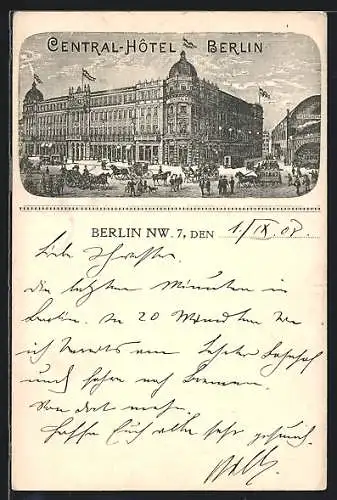 CENTRAL-HÔTEL BERLIN
BERLIN NW. 7, DEN 1./IX. 08.
Liebe Schwester.
Die letzten Minuten in
Berlin. In 20 Minuten
ich bereits am Bahnhof
und fahre nach Bremen.
Von dort mehr.
Hoffe Euch alle sehr